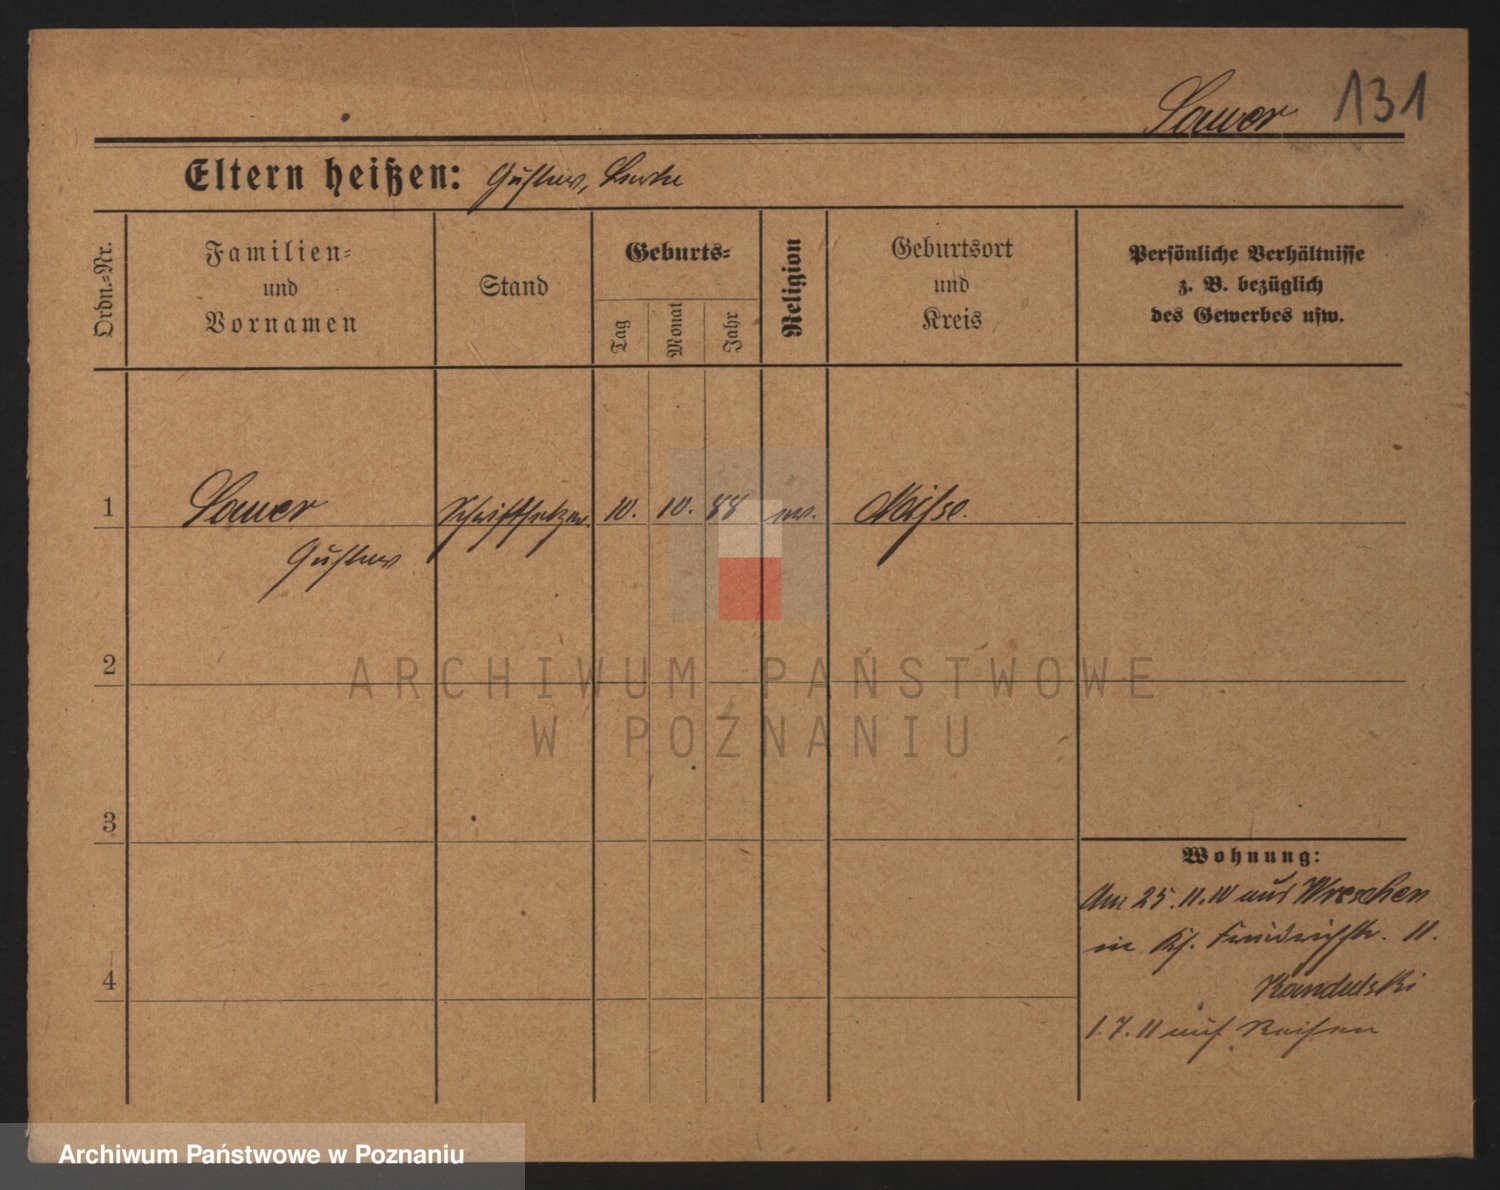 131
Eltern heißen: Gustav,
Ordn.-Nr.
Familien-
und
Vornamen
Stand
Geburts-
Tag
Monat
Jahr
Religion
Geburtsort
und
Kreis
Persönliche Verhältnisse
z. B. bezüglich
des Gewerbes usw.
1
Schriftsetzer 10. 10. 88 ev. Neisse.
Gustav
2
3
4
Wohnung:
Am 25.11.10 aus Wreschen
in Friedrichstr. 11.
Kandulski
1.7.11 auf Reisen
ARCHIWUM PAŃSTWOWE
W POZNANIU
Archiwum Państwowe w Poznaniu